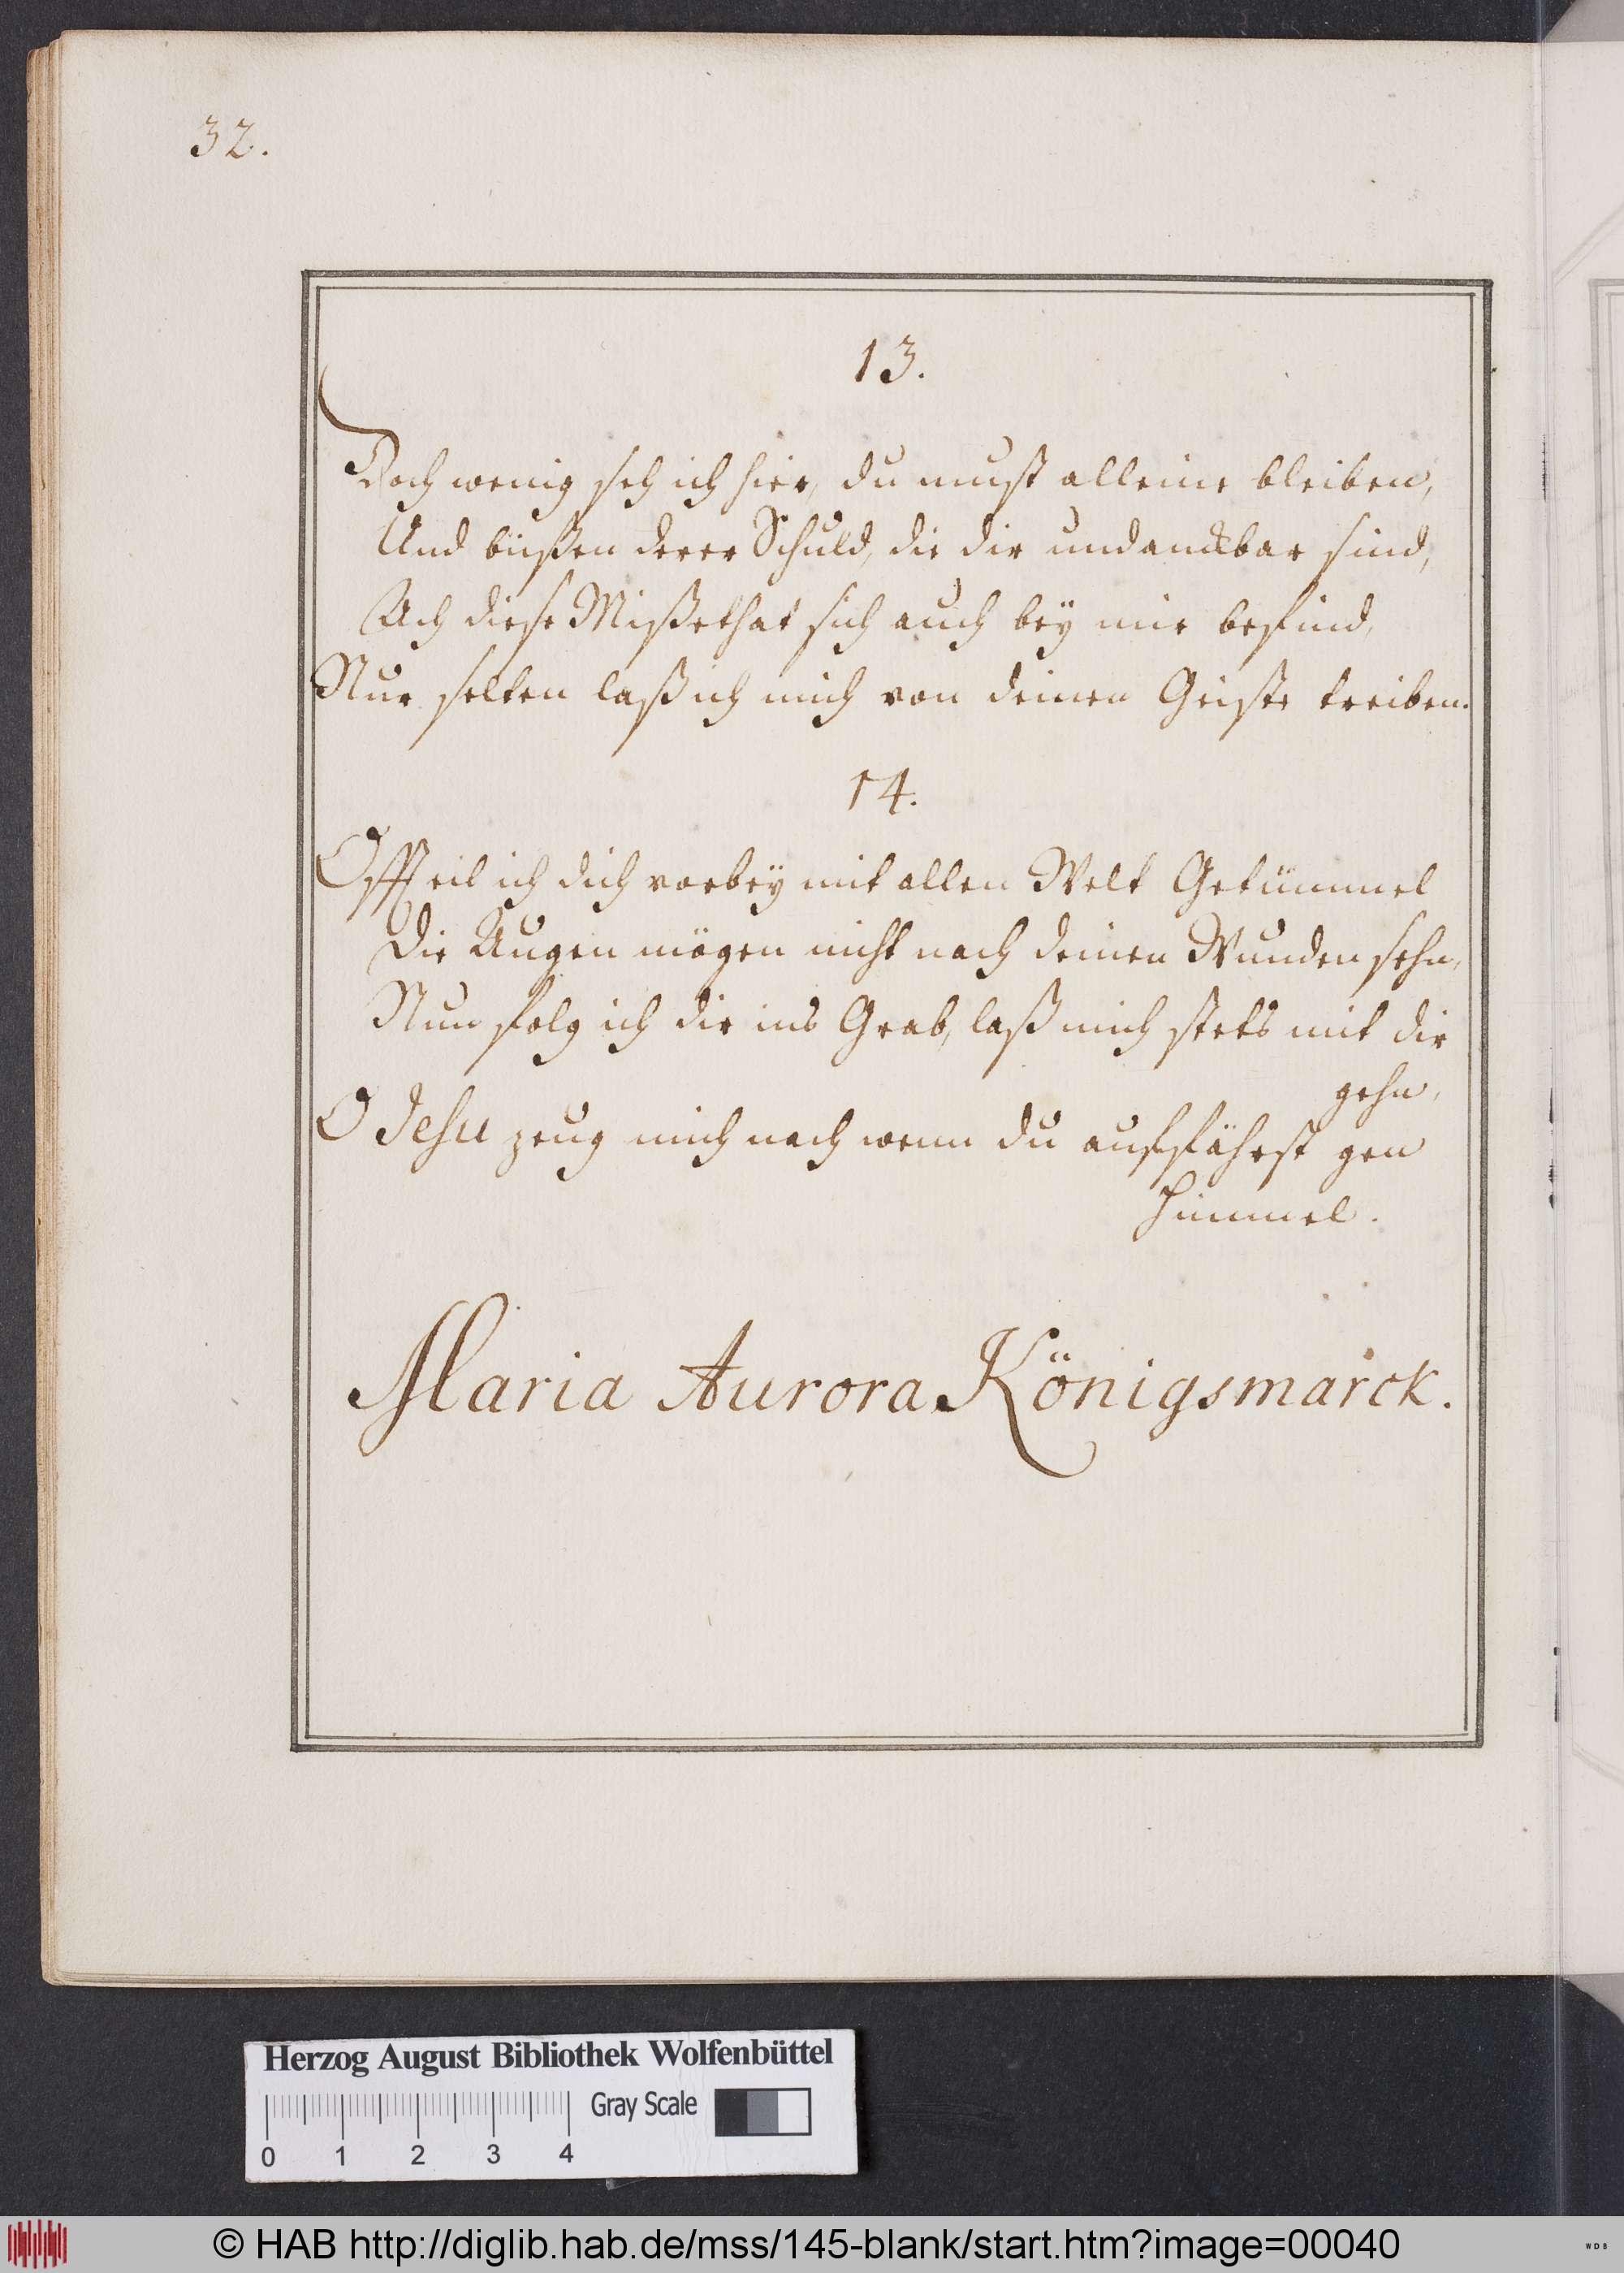 32.
13.
Doch wenig seh ich hier, du must alleine bleiben,
Und büßen derer Schuld, die dir undanckbar sind,
Ach diese Mißethat sich auch beÿ mir befind,
Nur selten laß ich mich von deinen Geiste treiben.
14.
Offt eil ich dich vorbeÿ mit allen Welt Getümmel
Die Augen mögen nicht nach deinen Wunden sehn,
Nun folg ich dir ins Grab, laß mich stets mit dir
gehn,
O Jesu zeug mich nach wenn du auffährst gen
Himmel.
Maria Aurora Königsmarck.
Herzog August Bibliothek Wolfenbüttel
Gray Scale
0 1 2 3 4
© HAB http://diglib.hab.de/mss/145-blank/start.htm?image=00040
WDB